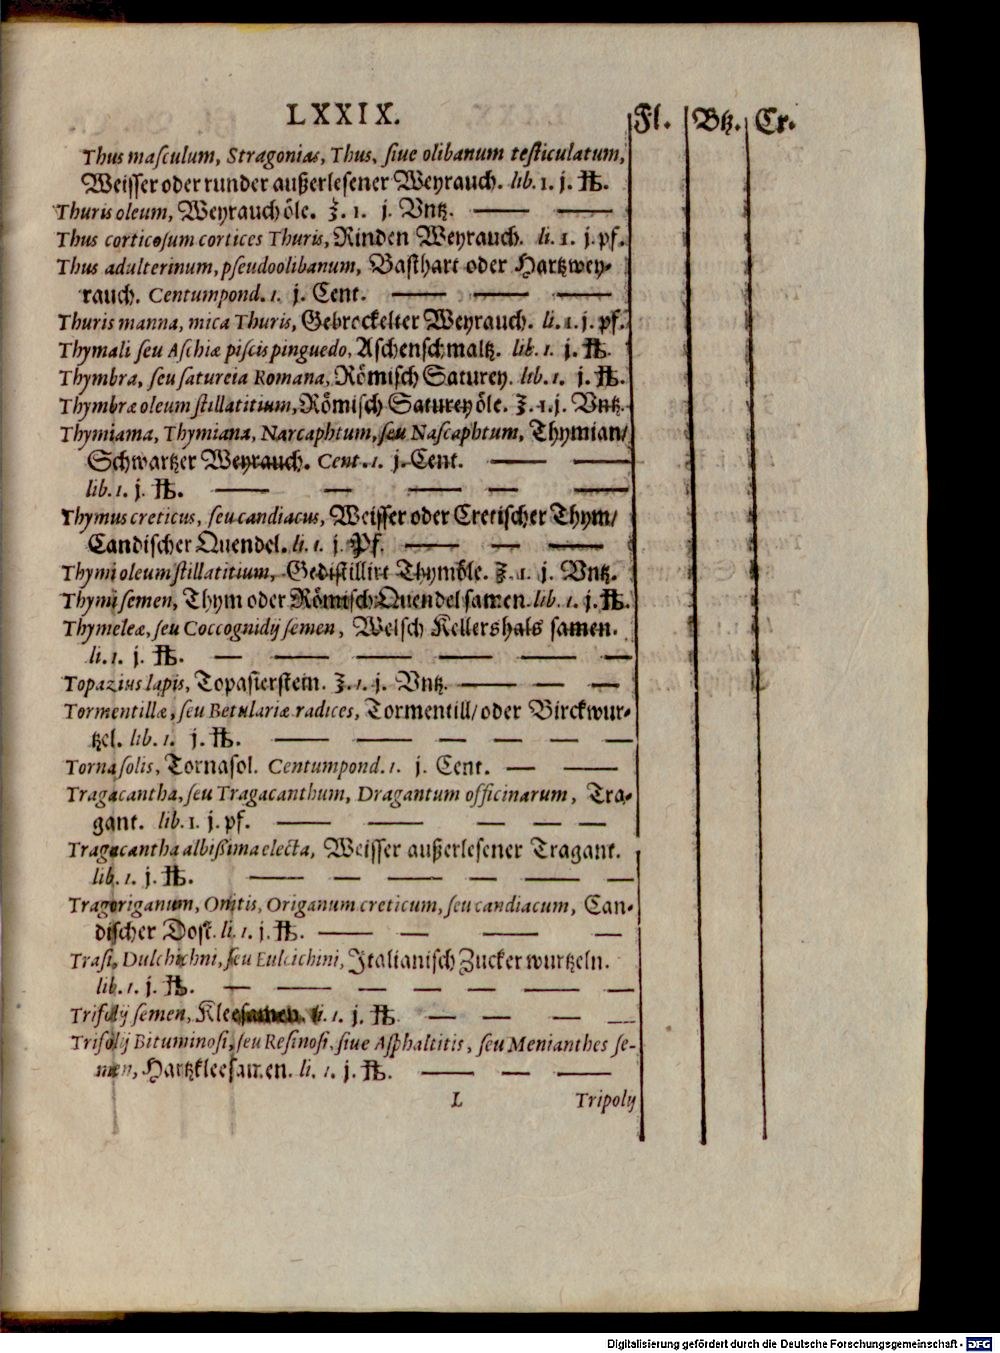 LXXIX.
Fl. Btz. Cr.
Thus maſculum, Stragonias, Thus, ſiue olibanum teſticulatum,
Weiſſer oder runder außerleſener Weyrauch. lib. 1. j. ℔.
Thuris oleum, Weyrauch öle. ℥. 1. j. Vntz.
Thus corticoſum cortices Thuris, Rinden Weyrauch. li. 1. j. pf.
Thus adulterinum, pſeudoolibanum, Baſthart oder Hartzwey-
rauch. Centumpond. 1. j. Cent.
Thuris manna, mica Thuris, Gebrockelter Weyrauch. li. 1. j. pf.
Thymali ſeu Aſchiæ piſcis pinguedo, Aſchenſchmaltz. lib. 1. j. ℔.
Thymbra, ſeu ſatureia Romana, Römiſch Saturey. lib. 1. j. ℔.
Thymbræ oleum ſtillatitium, Römiſch Saturey öle. ℥. 1. j. Vntz.
Thymiama, Thymiana, Narcaphtum, ſeu Naſcaphtum, Thymian/
Schwartzer Weyrauch. Cent. 1. j. Cent.
lib. 1. j. ℔.
Thymus creticus, ſeu candiacus, Weiſſer oder Cretiſcher Thym/
Candiſcher Quendel. li. 1. j. Pf.
Thymi oleum ſtillatitium, Gediſtillirt Thymöle. ℥. 1. j. Vntz.
Thymi ſemen, Thym oder Römiſch Quendel ſamen. lib. 1. j. ℔.
Thymeleæ, ſeu Coccognidij ſemen, Welſch Kellershals ſamen.
li. 1. j. ℔.
Topazius lapis, Topaſierſtein. ℥. 1. j. Vntz.
Tormentillæ, ſeu Betulariæ radices, Tormentill/ oder Birckwur-
tzel. lib. 1. j. ℔.
Tornaſolis, Tornaſol. Centumpond. 1. j. Cent.
Tragacantha, ſeu Tragacanthum, Dragantum officinarum, Tra-
gant. lib. 1. j. pf.
Tragacantha albißima electa, Weiſſer außerleſener Tragant.
lib. 1. j. ℔.
Tragoriganum, Onitis, Origanum creticum, ſeu candiacum, Can-
diſcher Doſt. li. 1. j. ℔.
Traſi, Dulchichni, ſeu Eulcichini, Italianiſch Zucker wurtzeln.
lib. 1. j. ℔.
Trifolij ſemen, Kleeſamen. li. 1. j. ℔.
Trifolij Bituminoſi, ſeu Reſinoſi, ſiue Aſphaltitis, ſeu Menianthes ſe-
men, Hartzkleeſamen. li. 1. j. ℔.
L Tripoly
Digitalisierung gefördert durch die Deutsche Forschungsgemeinschaft - DFG